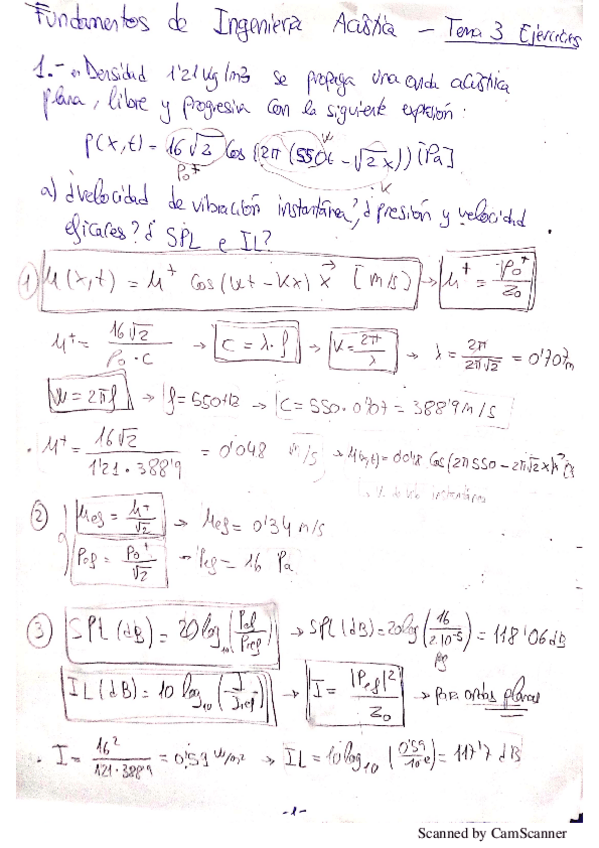 Fundamentos de Ingeniería Acústica - Tema 3 Ejercicios
1.- Densidad 1'21 kg/m3 se propaga una onda acústica
plana, libre y progresiva con la siguiente expresión:
p(x,t) = 16√2 cos (2π (550t - √2x)) [Pa]
Po+ k
a) ¿velocidad de vibración instantánea? ¿presión y velocidad
eficaces? ¿ SPL e IL?
1) μ(x,t) = μ+ cos(wt - kx) x [m/s] → μ+ = Po+/Zo
μ+ = 16√2/ρo·c → C = λ·f → k = 2π/λ → λ = 2π/2π√2 = 0'707m
w = 2πf → f = 550Hz → C = 550·0'707 = 388'9 m/s
· μ+ = 16√2/1'21·388'9 = 0'048 m/s → μ(x,t) = 0'048 cos(2π550 - 2π√2x)
instantánea
2) μef = μ+/√2 → μef = 0'34 m/s
Pef = Po+/√2 → Pef = 16 Pa
3) SPL (dB) = 20 log10 (Pef/Pref) → SPL (dB) = 20log (16/2·10^-5) = 118'06 dB
IL (dB) = 10 log10 (I/Iref) → I = |Pef|²/Zo → para ondas planas
· I = 16²/121·388'9 = 0'59 w/m² → IL = 10log10 (0'59/10) = 117'7 dB
-1-
Scanned by CamScanner